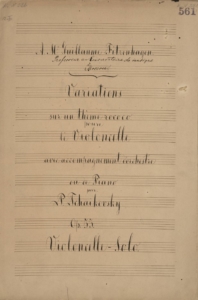 561
A M. Guillaume Fitzenhagen
Professeur au Conservatoire de musique
Variations
sur un thème rococo
pour
le Violoncelle
avec accompagnement d'orchestre
ou de Piano
par
P. Tchaïkovsky
Op. 33
Violoncelle-Solo